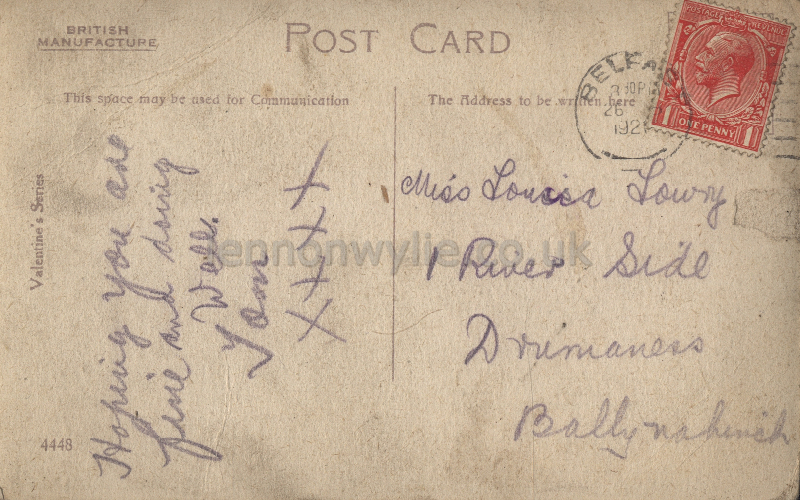 BRITISH
MANUFACTURE
POST CARD
This space may be used for Communication
The Address to be written here
POSTAGE REVENUE
1 ONE PENNY 1
BELFAST
26
192
Valentine's Series
Hoping you are
fine and doing
Well.
Tom
X X X X
Miss Louisa Lowry
1 River Side
Drumaness
Ballynahinch
4448
lennonwylie.co.uk